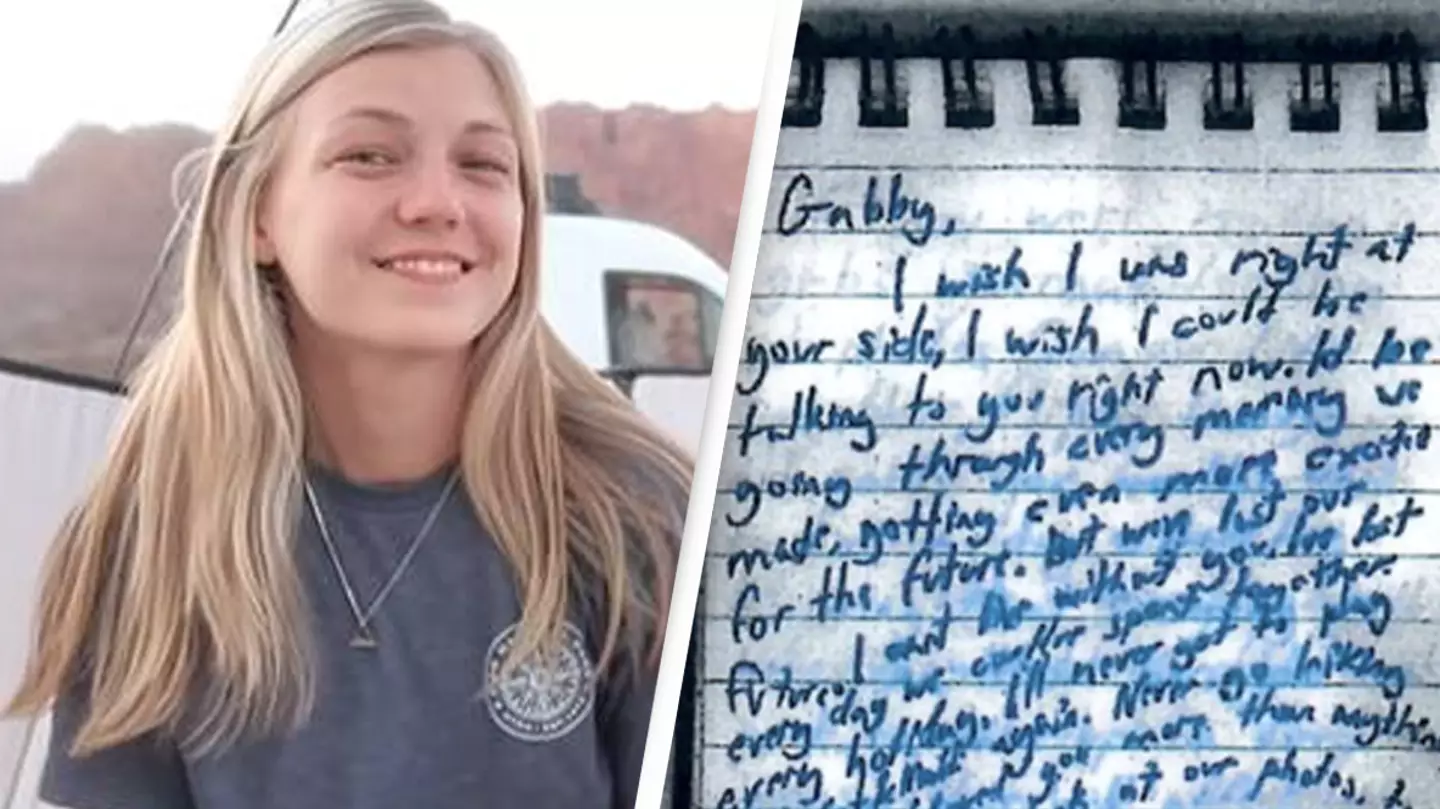 Gabby,
I wish I was right at
your side, I wish I could be
talking to you right now. Id be
going through every memory we
made, getting even more excited
for the future. But weve lost our
future. I cant live without you. Ive lost
every day we couldve spent together.
every holiday. Ill never get to play
again. Never go hiking
you more than anything
at our photos,